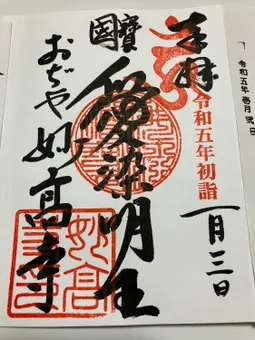 奉拝
令和五年初詣
一月三日
國寶
愛染明王
おぢや妙高寺
妙高寺
令和五年壱月弐日